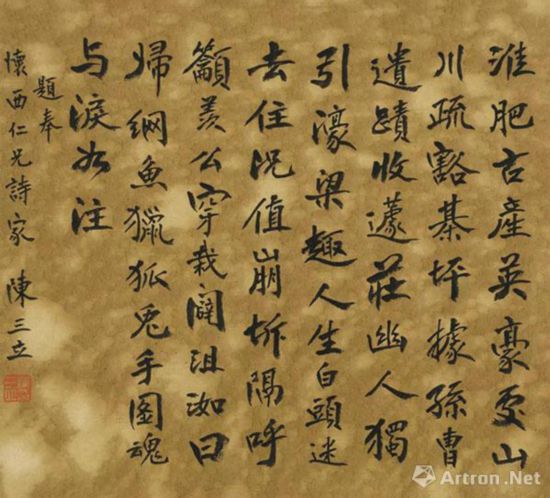 淮肥古產英豪處山
川疏豁棊枰據孫曹
遺蹟收蘧莊幽人獨
引濠梁趣人生白頭迷
去住況值崩坼隔呼
籲羨公穿栽闢沮洳日
歸網魚獵狐兔手圖魂
与淚如注
題奉
懷西仁兄詩家 陳三立
Artron.Net